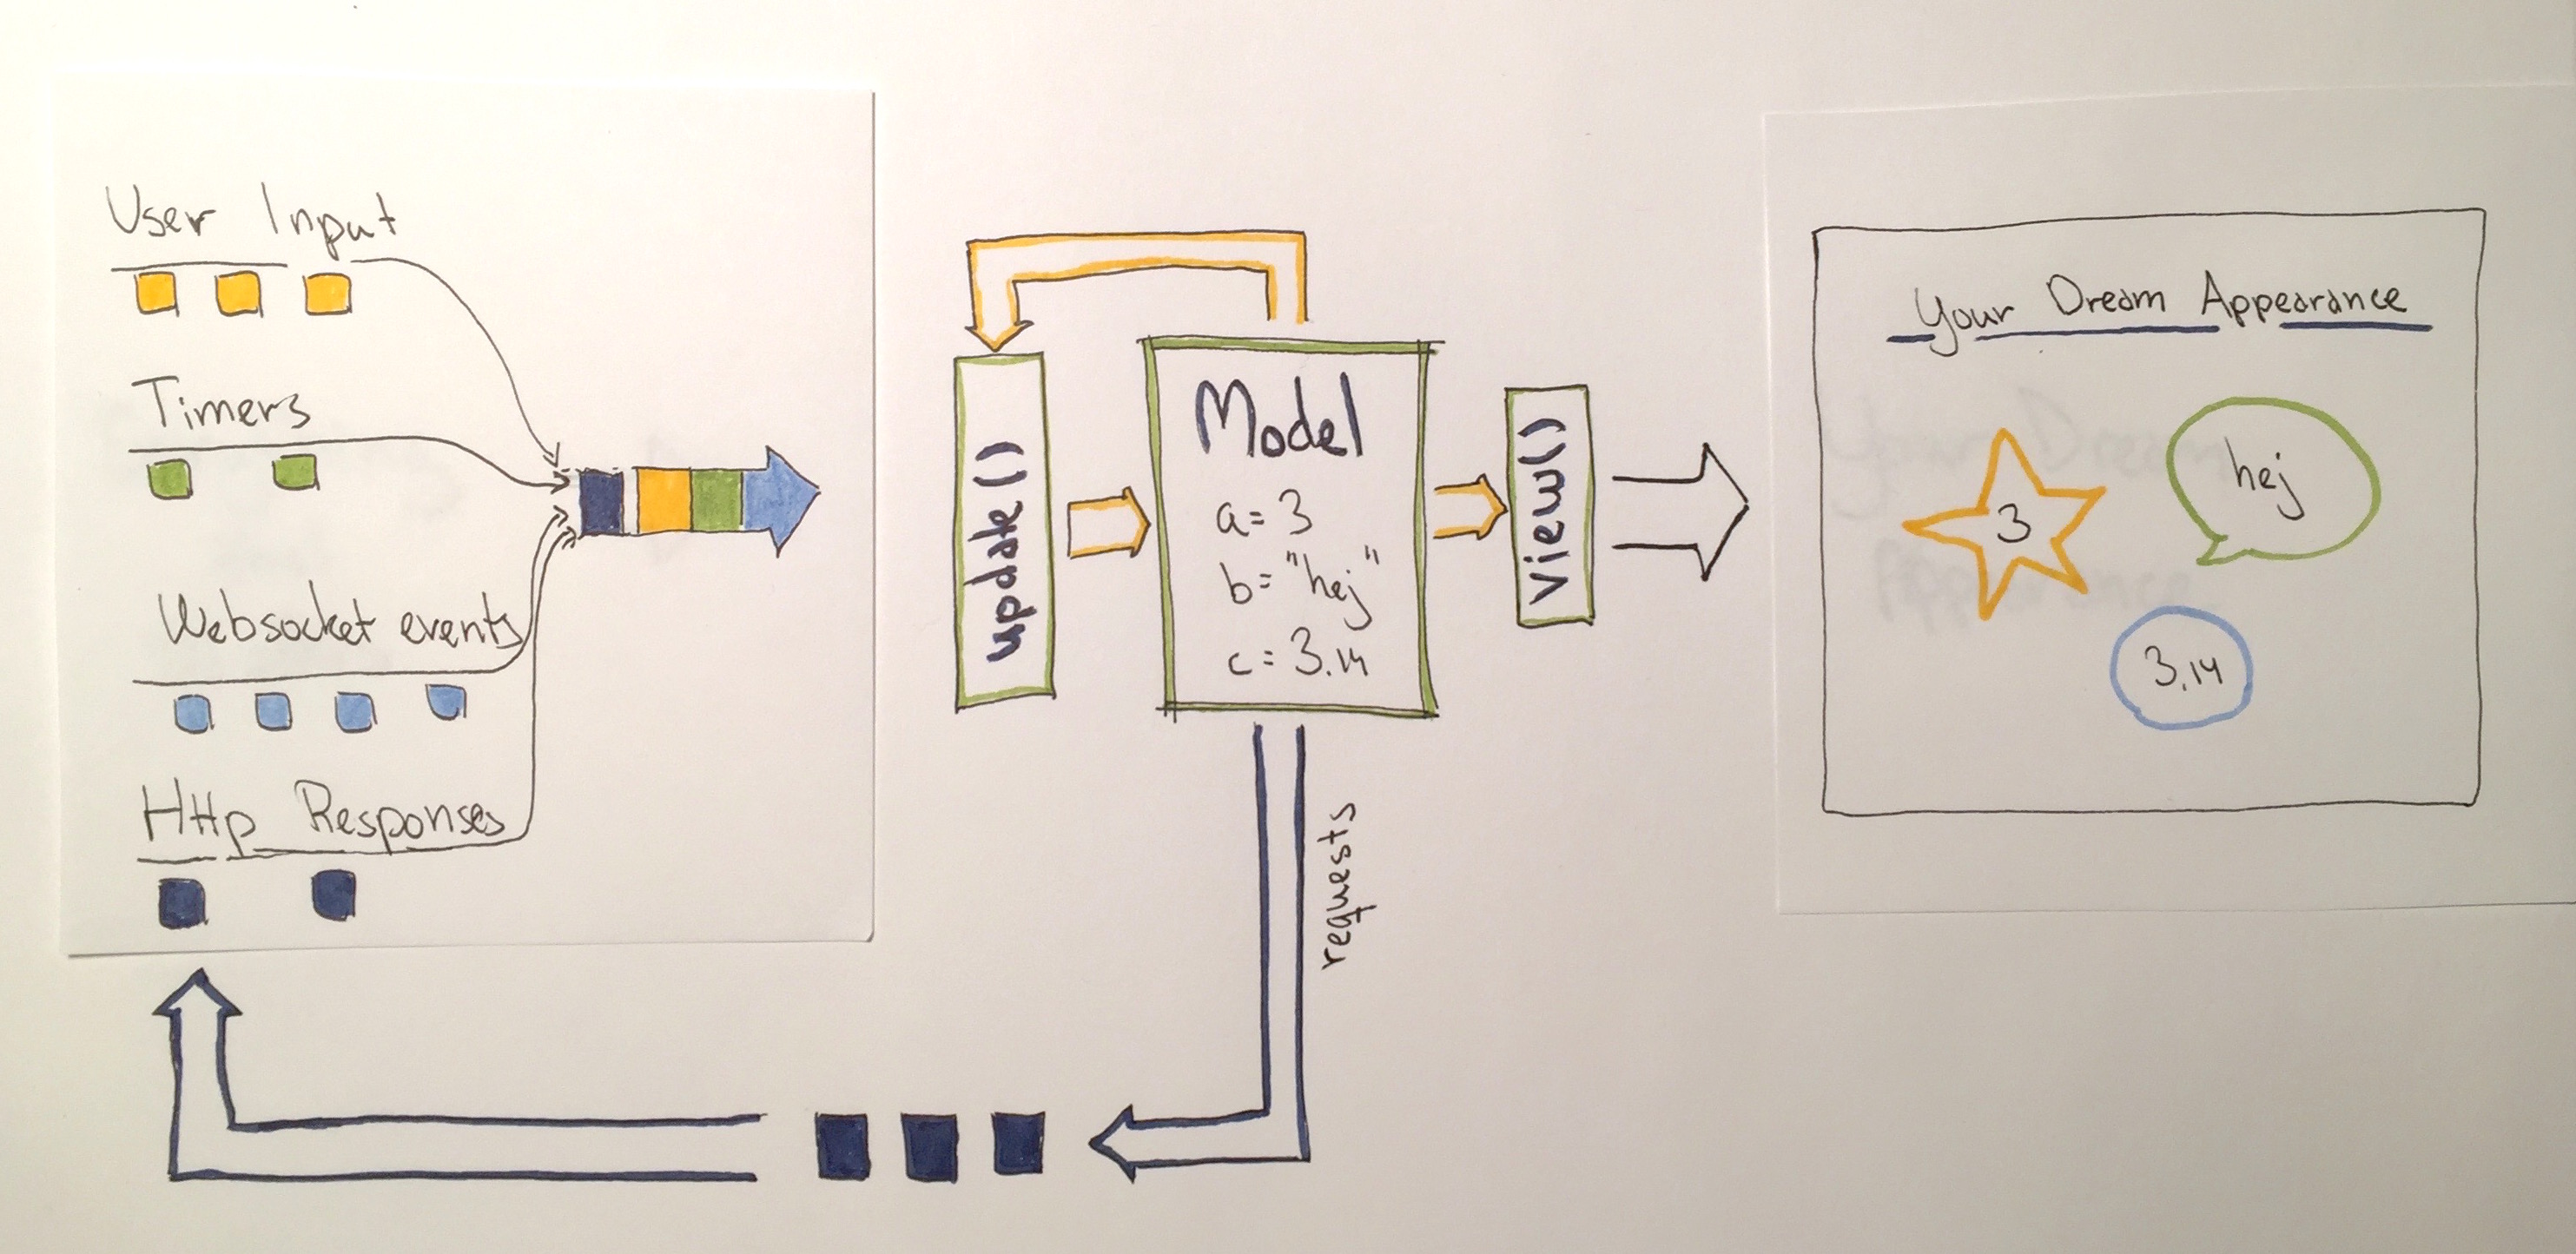 User Input
Timers
Websocket events
Http Responses
update()
Model
a = 3
b = "hej"
c = 3.14
view()
requests
Your Dream Appearance
3
hej
3.14